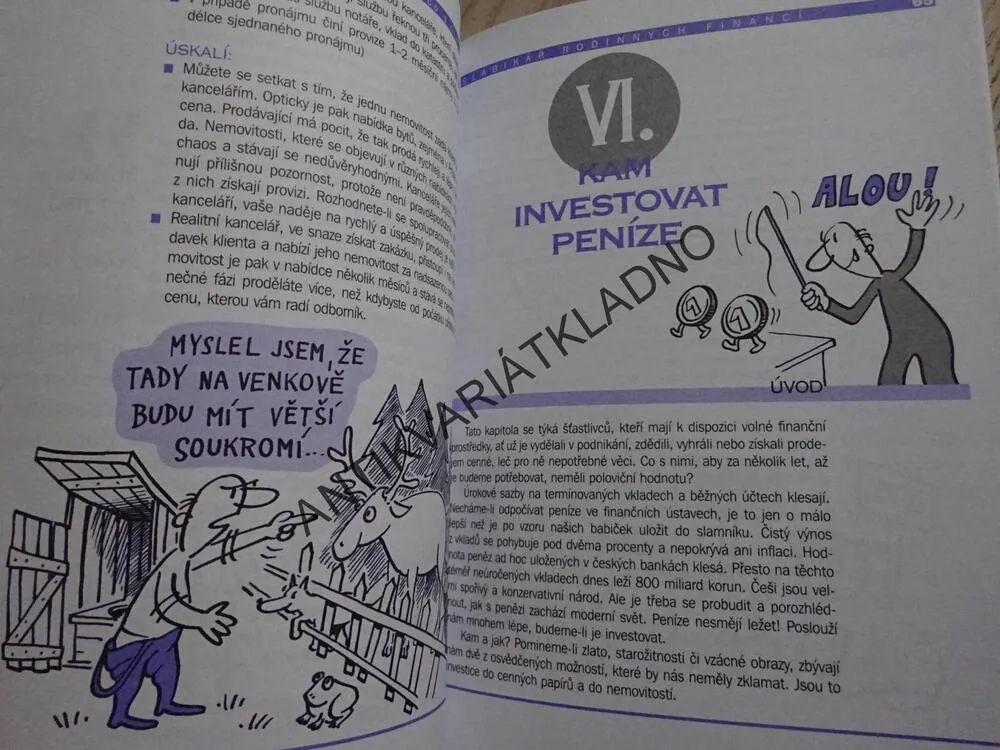 službu notáře, vklad do katastru
V případě pronájmu činí provize 1–2 měsíční
délce sjednaného pronájmu)
ÚSKALÍ:
Můžete se setkat s tím, že jednu nemovitost
kancelářím. Opticky je pak nabídka bytů, zejména
cena. Prodávající má pocit, že tak prodá rychleji a
da. Nemovitosti, které se objevují v různých
chaos a stávají se nedůvěryhodnými. Kanceláře
nují přílišnou pozornost, protože není pravděpodobné
z nich získají provizi. Rozhodnete-li se spolupracovat
kanceláří, vaše naděje na rychlý a úspěšný prodej
Realitní kancelář, ve snaze získat zakázku, přistoupí
davek klienta a nabízí jeho nemovitost za nadsazenou
movitost je pak v nabídce několik měsíců a stává se
nečné fázi proděláte více, než kdybyste od počátku
cenu, kterou vám radí odborník.
MYSLEL JSEM, ŽE
TADY NA VENKOVĚ
BUDU MÍT VĚTŠÍ
SOUKROMÍ...
SLABIKÁŘ RODINNÝCH FINANCÍ
65
VI.
KAM
INVESTOVAT
PENÍZE
ALOU!
1
1
ÚVOD
Tato kapitola se týká šťastlivců, kteří mají k dispozici volné finanční
prostředky, ať už je vydělali v podnikání, zdědili, vyhráli nebo získali prode-
jem cenné, leč pro ně nepotřebné věci. Co s nimi, aby za několik let, až
je budeme potřebovat, neměli poloviční hodnotu?
Úrokové sazby na termínovaných vkladech a běžných účtech klesají.
Necháme-li odpočívat peníze ve finančních ústavech, je to jen o málo
lepší než je po vzoru našich babiček uložit do slamníku. Čistý výnos
z vkladů se pohybuje pod dvěma procenty a nepokrývá ani inflaci. Hod-
nota peněz ad hoc uložených v českých bankách klesá. Přesto na těchto
téměř neúročených vkladech dnes leží 800 miliard korun. Češi jsou vel-
mi spořivý a konzervativní národ. Ale je třeba se probudit a porozhléd-
nout, jak s penězi zachází moderní svět. Peníze nesmějí ležet! Poslouží
nám mnohem lépe, budeme-li je investovat.
Kam a jak? Pomineme-li zlato, starožitnosti či vzácné obrazy, zbývají
nám dvě z osvědčených možností, které by nás neměly zklamat. Jsou to
investice do cenných papírů a do nemovitostí.
ANTIKVARIÁTKLADNO